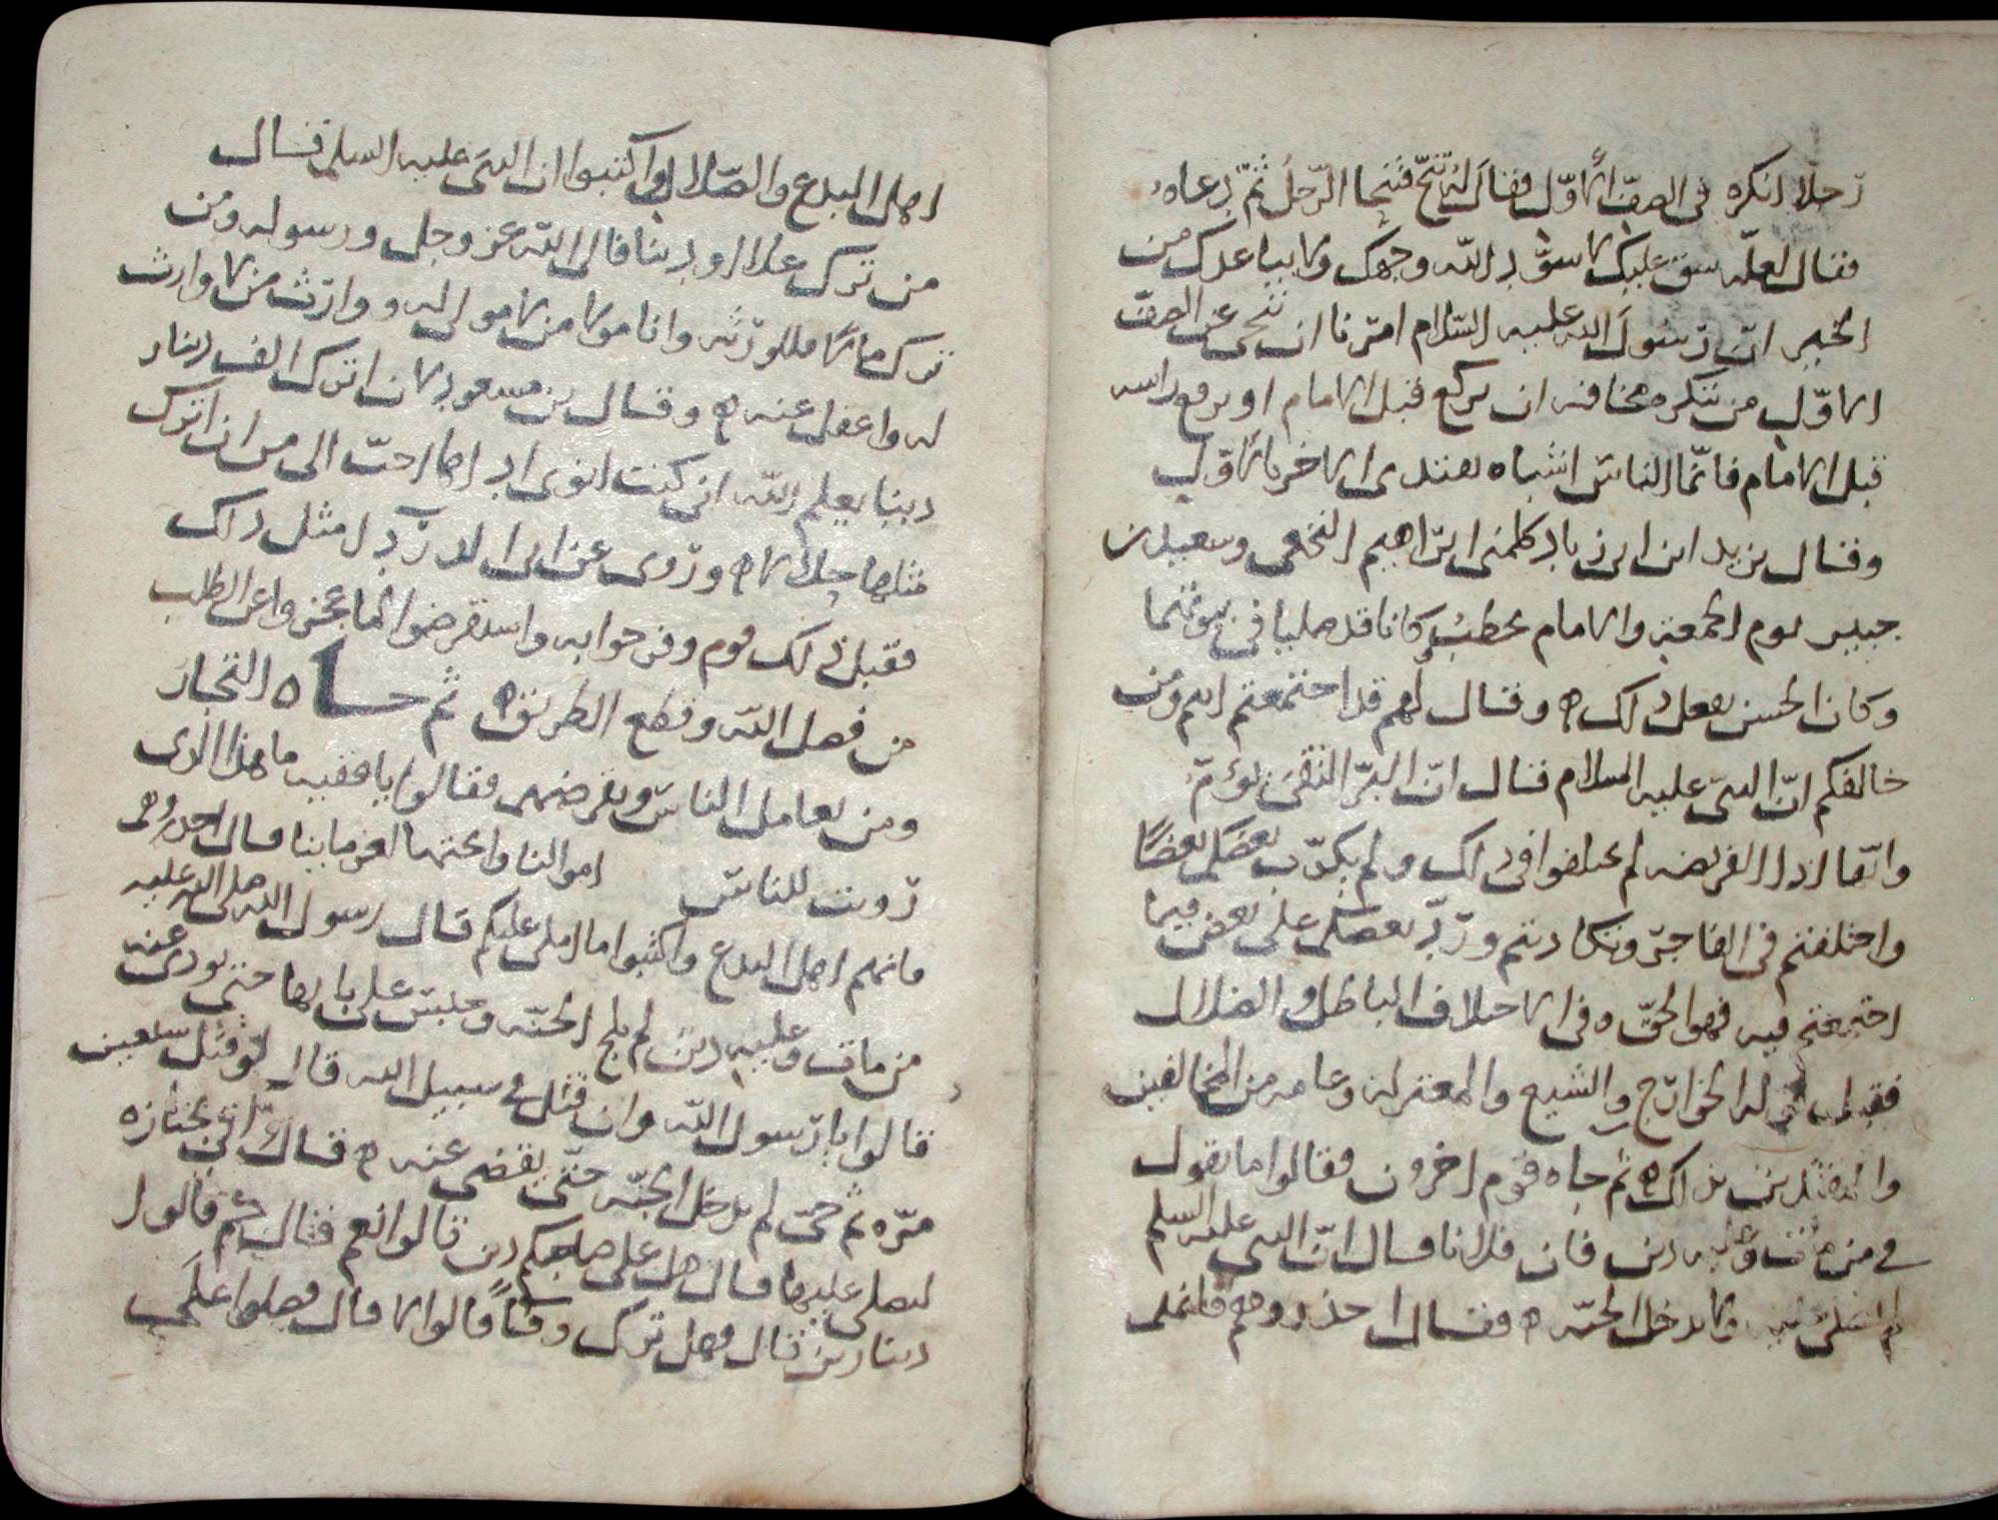 رجلا انكره في الصف الاول فقال له تنح فتنحا الرجل ثم دعاه
فقال لعله سق عليك لا سود الله وجهك ولا يباعدك من
الخير ان رسول الله عليه السلام امرنا ان ننحي عن الصف
الاول من ننكره مخافه ان يركع قبل الامام او يرفع راسه
قبل الامام فانما الناس اشباه يقتدى الاخر بالاول
وقال يزيد ابن ابى زياد كلمنى ابراهيم النخعى وسعيد بن
جبير يوم الجمعة والامام يخطب وكانا قد صليا في بيوتهما
وكان الحسن يفعل ذلك وقال لهم قد اجتمعتم انتم ومن
خالفكم ان النبى عليه السلام قال ان البر التقى يؤم
وانها اذا الفريضه لم يختلفوا في ذلك ولم يكذب بعضكم بعضا
واختلفتم في الفاجر وتكاذبتم ورد بعضكم على بعض فيما
اجتمعتم فيه فهو الحق وفى الاختلاف الباطل والضلال
فقبل قوله الخوارج والشيع والمعتزلة وعامه من المخالفين
والمفتدين بذلك ثم جاه قوم اخرون فقالوا ما تقول
في من مات وعليه دين فان فلانا قال ان النبى عليه السلم
لم يصلى عليه ولا يدخل الجنه فقال احذروهم فانهم
اهل البدع والضلال واكتبوا ان النبى عليه السلم قال
من ترك عيالا او دينا فالى الله عز وجل ورسوله ومن
ترك مالا فللورثه وانا مولا من لا مولى له ووارث من لا وارث
له واعقل عنه وقال بن مسعود لان اترك الف دينار
دينا يعلم الله انى كنت انوى اداها احب الى من ان اترك
مثلها حلالا وروى عن ابى الدردا مثل ذلك
فقبل ذلك قوم وفرحوا به واستقرضوا لما عجزوا عن الطلب
من فضل الله وقطع الطريق ثم جاه التجار
ومن يعامل الناس ويقرضهم فقالوا يا فقيه ما هذا الذى
رويت للناس اموالنا وابحتها لغرماينا قال احذروهم
فانهم اهل البدع واكتبوا ما املى عليكم قال رسول الله صلى الله عليه
من مات وعليه دين لم يلج الجنه وحبس على بابها حتى يودى عنه
قالوا يا رسول الله وان قتل في سبيل الله قال لو قتل سبعين
مره ثم حى لم يدخل الجنه حتى يقضى عنه وقال اتى بجنازه
ليصلى عليها فقال هل على صاحبكم دين قالوا نعم فقال كم قالوا
دينارين قال فهل ترك وفا قالوا لا قال فصلوا على